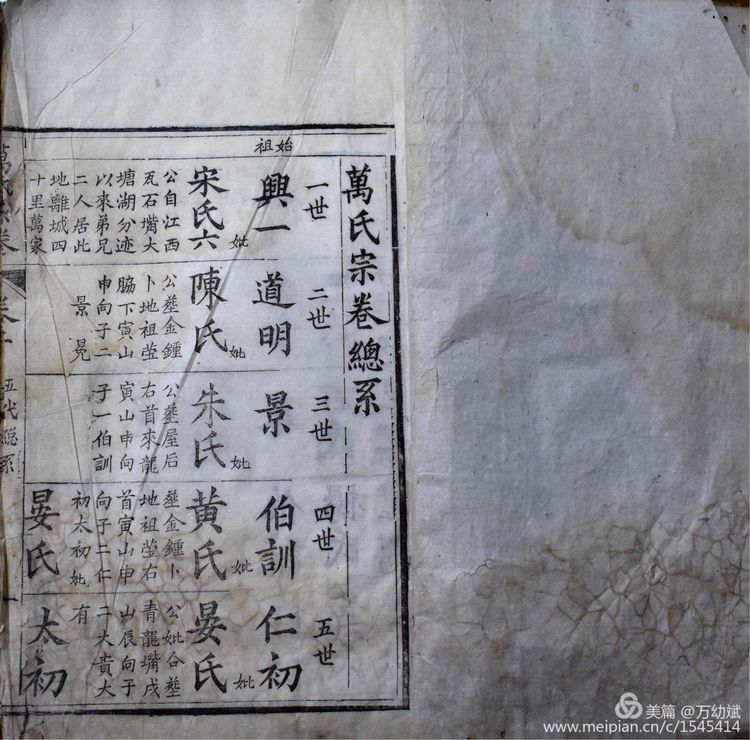 萬氏宗卷總系
始祖
一世
興一
妣
宋氏六
公自江西
瓦石嘴大
塘湖分迹
以來弟兄
二人居此
地離城四
十里萬家
二世
道明
妣
陳氏
公塟金鍾
卜地祖塋
脇下寅山
申向子二
景 晃
三世
景
妣
朱氏
公塟屋后
右首來龍
寅山申向
子一伯訓
四世
伯訓
妣
黄氏
塟金鍾卜
地祖塋右
首寅山申
向子二仁
初太初
妣
晏氏
五世
仁初
妣
晏氏
公妣合塟
青龍嘴戌
山辰向子
二大貴大
有
太初
五代總系
美篇 @万幼斌
www.meipian.cn/c/1545414